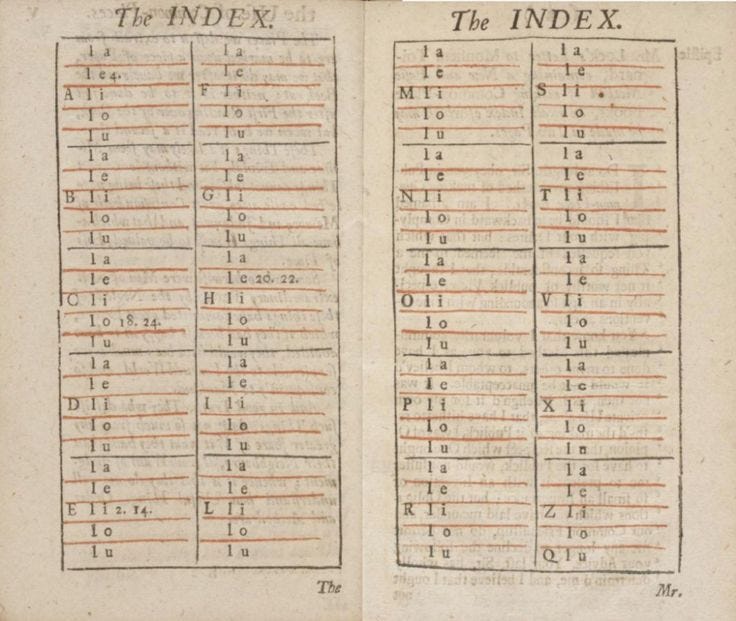 The INDEX.
l a
l e 4.
A l i
l o
l u
l a
l e
B l i
l o
l u
l a
l e
C l i
l o 18. 24.
l u
l a
l e
D l i
l o
l u
l a
l e
E l i 2. 14.
l o
l u
l a
l e
F l i
l o
l u
l a
l e
G l i
l o
l u
l a
l e 20. 22.
H l i
l o
l u
l a
l e
I l i
l o
l u
l a
l e
L l i
l o
l u
The
The INDEX.
l a
l e
M l i
l o
l u
l a
l e
N l i
l o
l u
l a
l e
O l i
l o
l u
l a
l e
P l i
l o
l u
l a
l e
R l i
l o
l u
l a
l e
S l i
l o
l u
l a
l e
T l i
l o
l u
l a
l e
V l i
l o
l u
l a
l e
X l i
l o
l n
l a
l e
Z l i
l o
Q l u
Mr.